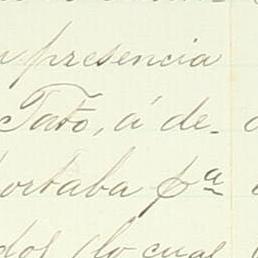 presencia
Tato, á de-
ortaba pª
dos, lo cual